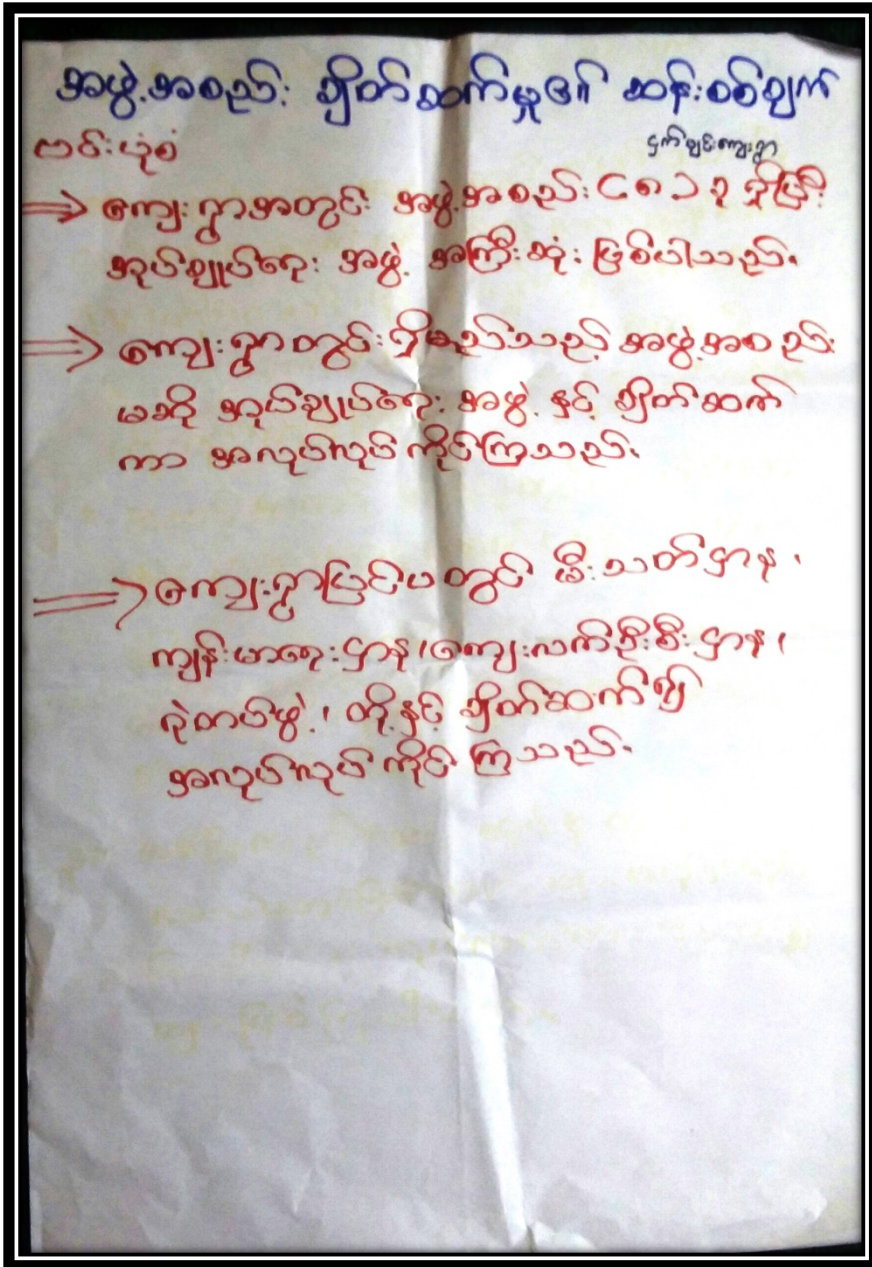 အဖွဲ့အစည်း ချိတ်ဆက်မှုဇၢ် ဆန်းစစ်ချက်
ငှက်ချင်းကျေးရွာ
ဗင်းပုံစံ
⇒ ကျေးရွာအတွင်း အဖွဲ့အစည်း (၈) ခု ရှိပြီး
အုပ်ချုပ်ရေး အဖွဲ့ အကြီးဆုံး ဖြစ်ပါသည်။
⇒ ကျေးရွာတွင်း ရှိမည်သည့် အဖွဲ့အစည်း
မဆို အုပ်ချုပ်ရေး အဖွဲ့ နှင့် ချိတ်ဆက်
ကာ အလုပ်လုပ် ကိုင်ကြသည်။
⇒ ကျေးရွာပြင်ပတွင် မီးသတ်ဌာန ၊
ကျန်းမာရေးဌာန ၊ ကျေးလက်ဦးစီးဌာန ၊
ရဲတပ်ဖွဲ့ ၊ တို့နှင့် ချိတ်ဆက်၍
အလုပ်လုပ် ကိုင် ကြသည်။